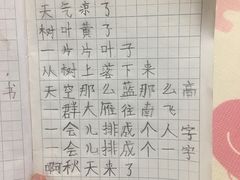 天气凉了
树叶黄了
一片片叶子
从树上落下来
书
天空那么蓝那么高
一群大雁往南飞
一会儿排成个人字
一会儿排成个一字
啊秋天来了